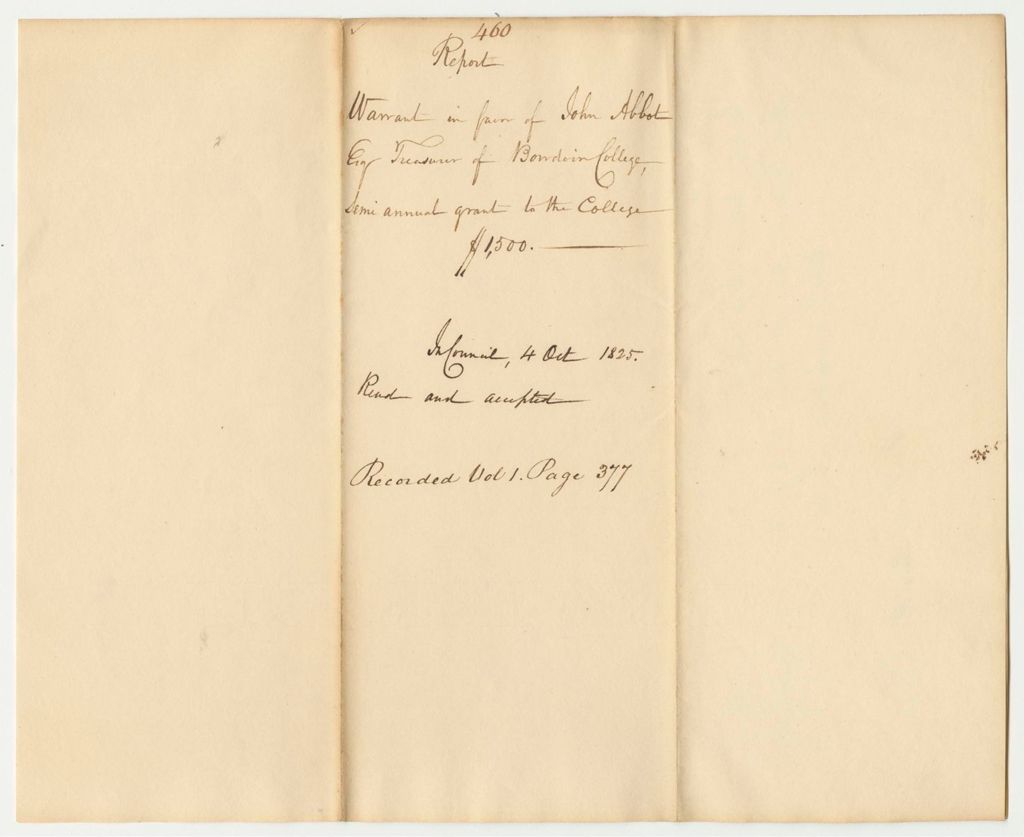 460
Report
Warrant in favor of John Abbot
Esq Treasurer of Bowdoin College,
Semi annual grant to the College
$1,500.
In Council, 4 Oct 1825.
Read and accepted
Recorded Vol 1. Page 377